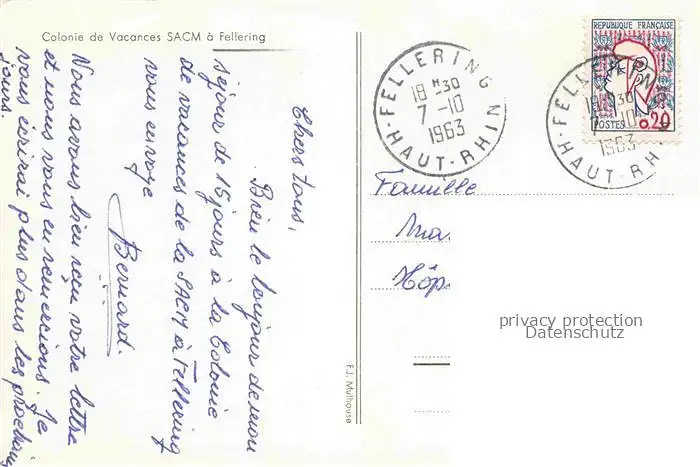 Colonie de Vacances SACM à Fellering
Chers tous,
Bien le bonjour de mon
séjour de 15 jours à la Colonie
de vacances de la SACM à Fellering
vous envoye
Bernard.
Nous avons bien reçu votre lettre
et nous vous en remercions. Je
vous écrirai plus dans les prochains
jours.
F.J. Mulhouse
FELLERING
18 H30
7-10
1963
HAUT-RHIN
REPUBLIQUE FRANÇAISE
POSTES 0,20
FELLERING
18 H30
7-10
1963
HAUT-RH
Famille
Ma
Hôp.
privacy protection
Datenschutz